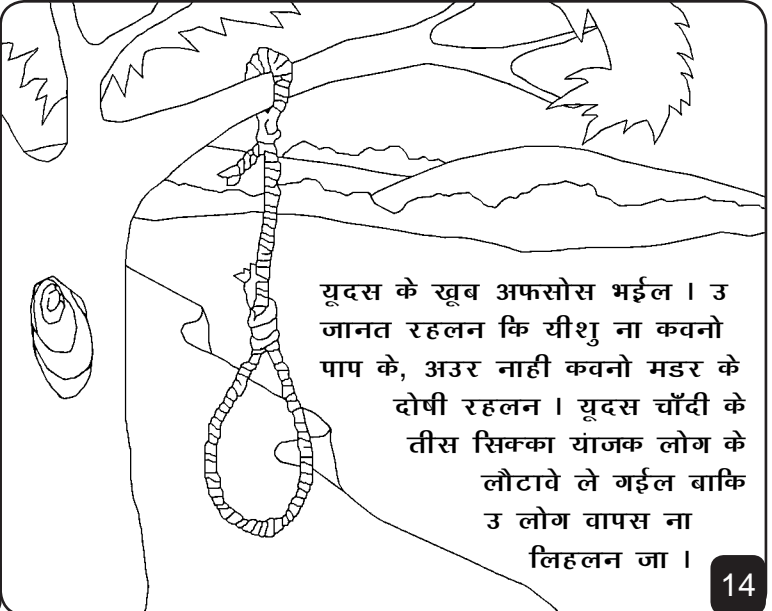 यूदस के खूब अफसोस भईल । उ
जानत रहलन कि यीशु ना कवनो
पाप के, अउर नाही कवनो मडर के
दोषी रहलन । यूदस चाँदी के
तीस सिक्का यांजक लोग के
लौटावे ले गईल बाकि
उ लोग वापस ना
लिहलन जा ।
14